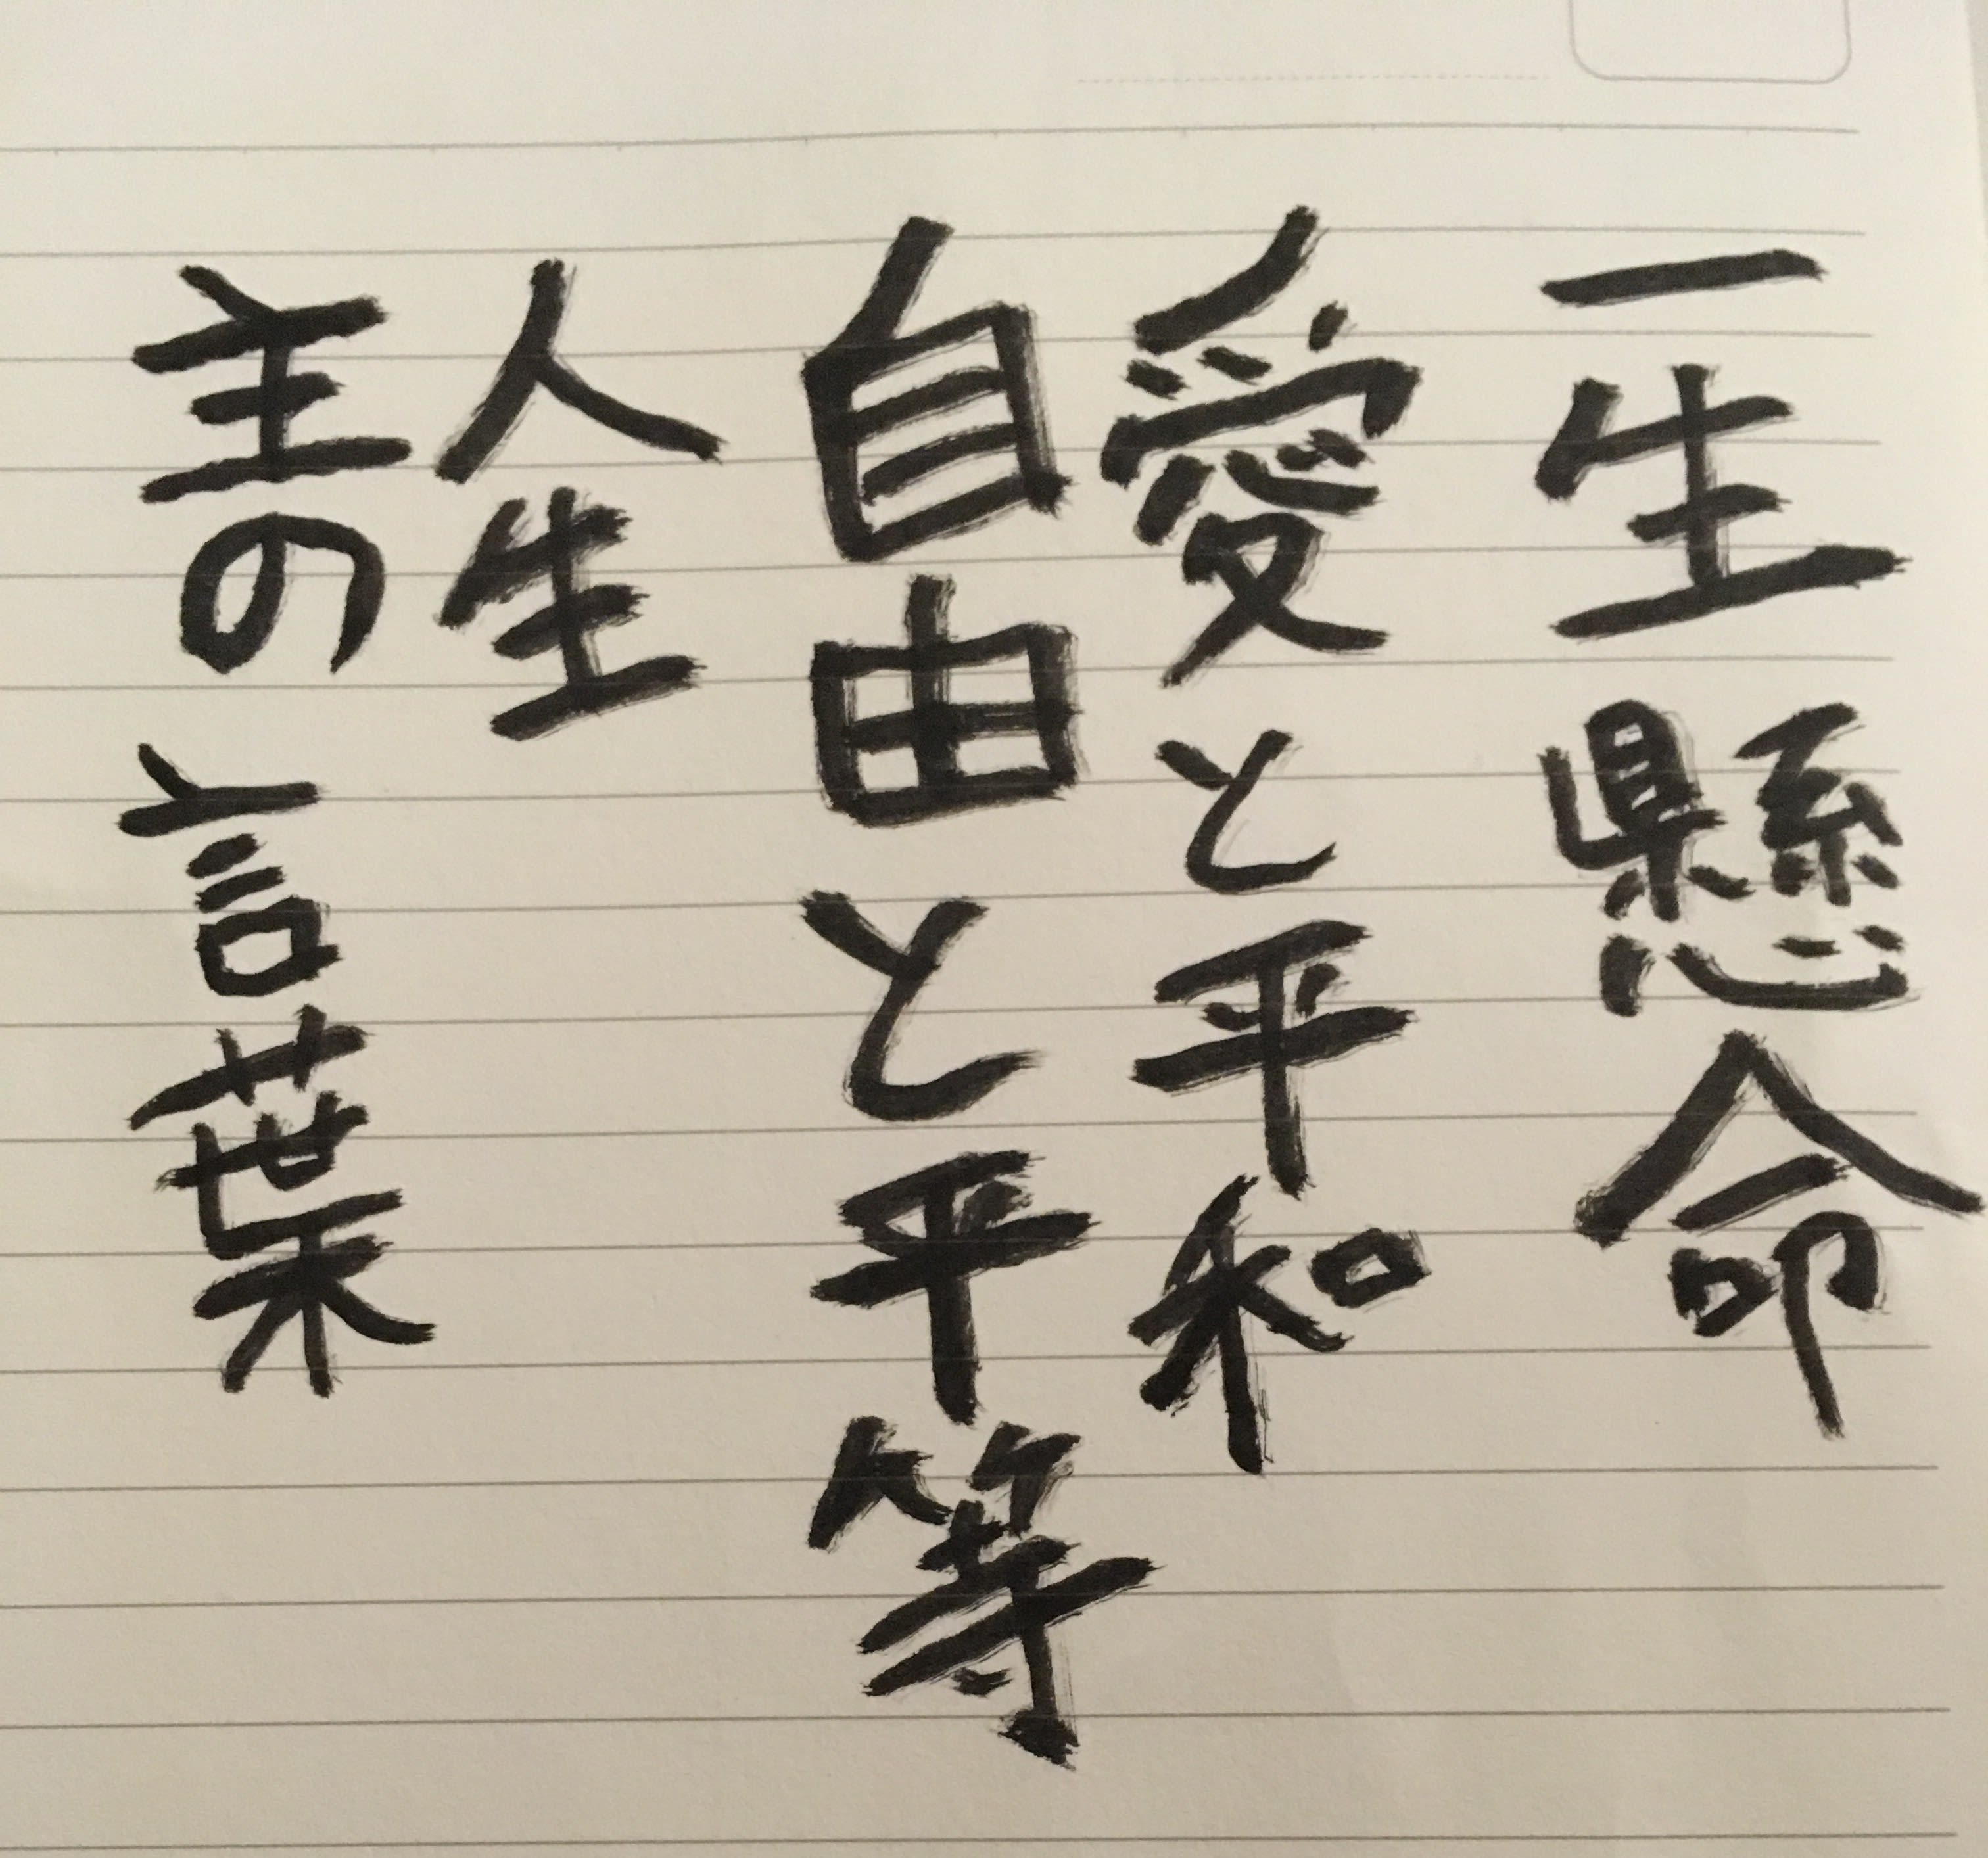 一生懸命
愛と平和
自由と平等
人生
主の言葉